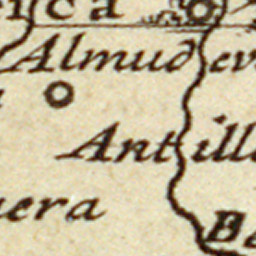 ica
Almudev
Antilla
uera
Ba